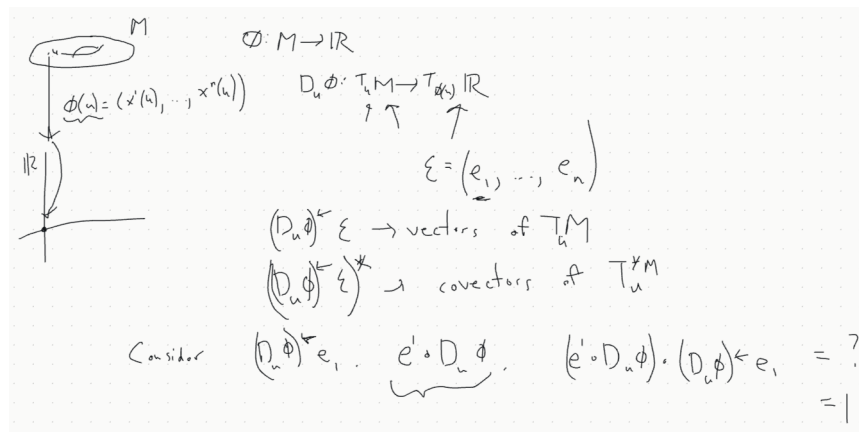 M
∅: M → ℝ
D_u ∅: T_u M → T_∅(u) ℝ
ϕ(u) = (x¹(u), ..., xⁿ(u))
ℝ
ξ = (e₁, ..., eₙ)
(D_u ϕ)^← ξ → vectors of T_u M
((D_u ϕ)^← ξ)^* → covectors of T_u^* M
Consider (D_u ϕ)^← e₁. e¹ ∘ D_u ϕ. (e¹ ∘ D_u ϕ) ∘ (D_u ϕ)^← e₁ = ?
= 1